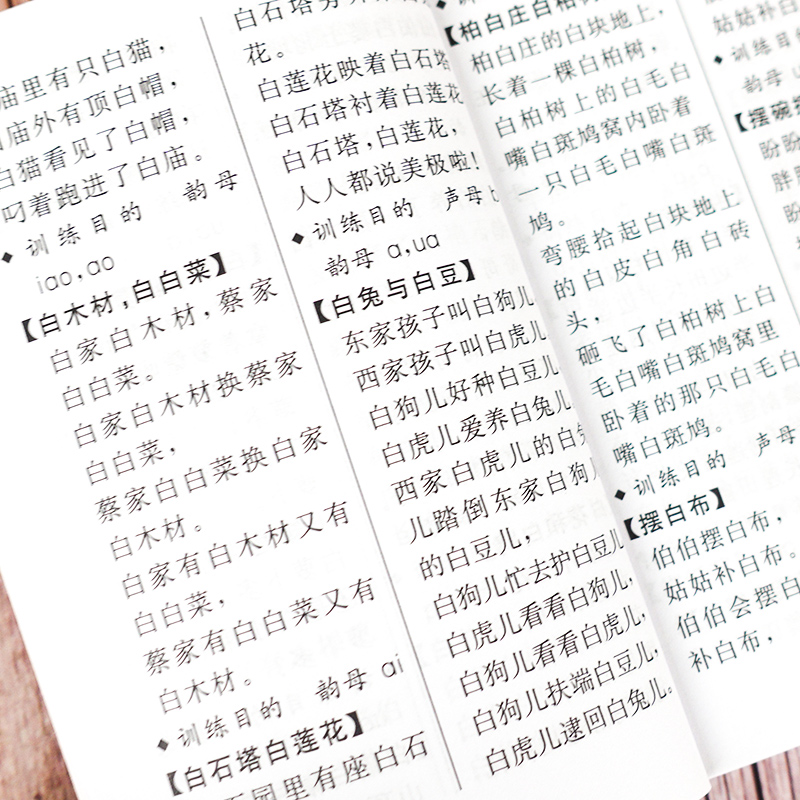 庙里有只白猫，
庙外有顶白帽，
白猫看见了白帽，
叼着跑进了白庙。
◆训练目的 韵母
iao,ao
【白木材,白白菜】
白家白木材,蔡家
白白菜。
白家白木材换蔡家
白白菜，
蔡家白白菜换白家
白木材。
白家有白木材又有
白白菜，
蔡家有白白菜又有
白木材。
◆训练目的 韵母 ai
【白石塔白莲花】
园里有座白石
白石塔旁
花。
白莲花映着白石塔
白石塔衬着白莲花
白石塔,白莲花，
人人都说美极啦!
◆训练目的 声母b
韵母 a,ua
【白兔与白豆】
东家孩子叫白狗儿
西家孩子叫白虎儿
白狗儿好种白豆儿
白虎儿爱养白兔儿
西家白虎儿的白兔
儿踏倒东家白狗儿
的白豆儿，
白狗儿忙去护白豆儿
白虎儿看看白狗儿，
白狗儿看看白虎儿，
白狗儿扶端白豆儿，
白虎儿逮回白兔儿。
【柏白庄白柏
柏白庄的白块地上，
长着一棵白柏树，
白柏树上的白毛白
嘴白斑鸠窝内卧着
一只白毛白嘴白斑
鸠。
弯腰拾起白块地上
的白皮白角白砖
头，
砸飞了白柏树上白
毛白嘴白斑鸠窝里
卧着的那只白毛白
嘴白斑鸠。
◆训练目的 声母
【摆白布】
伯伯摆白布，
姑姑补白布。
伯伯会摆白
补白布，
姑姑补白
◆训练目的
韵母 u
【摆碗
盼盼
胖
盼